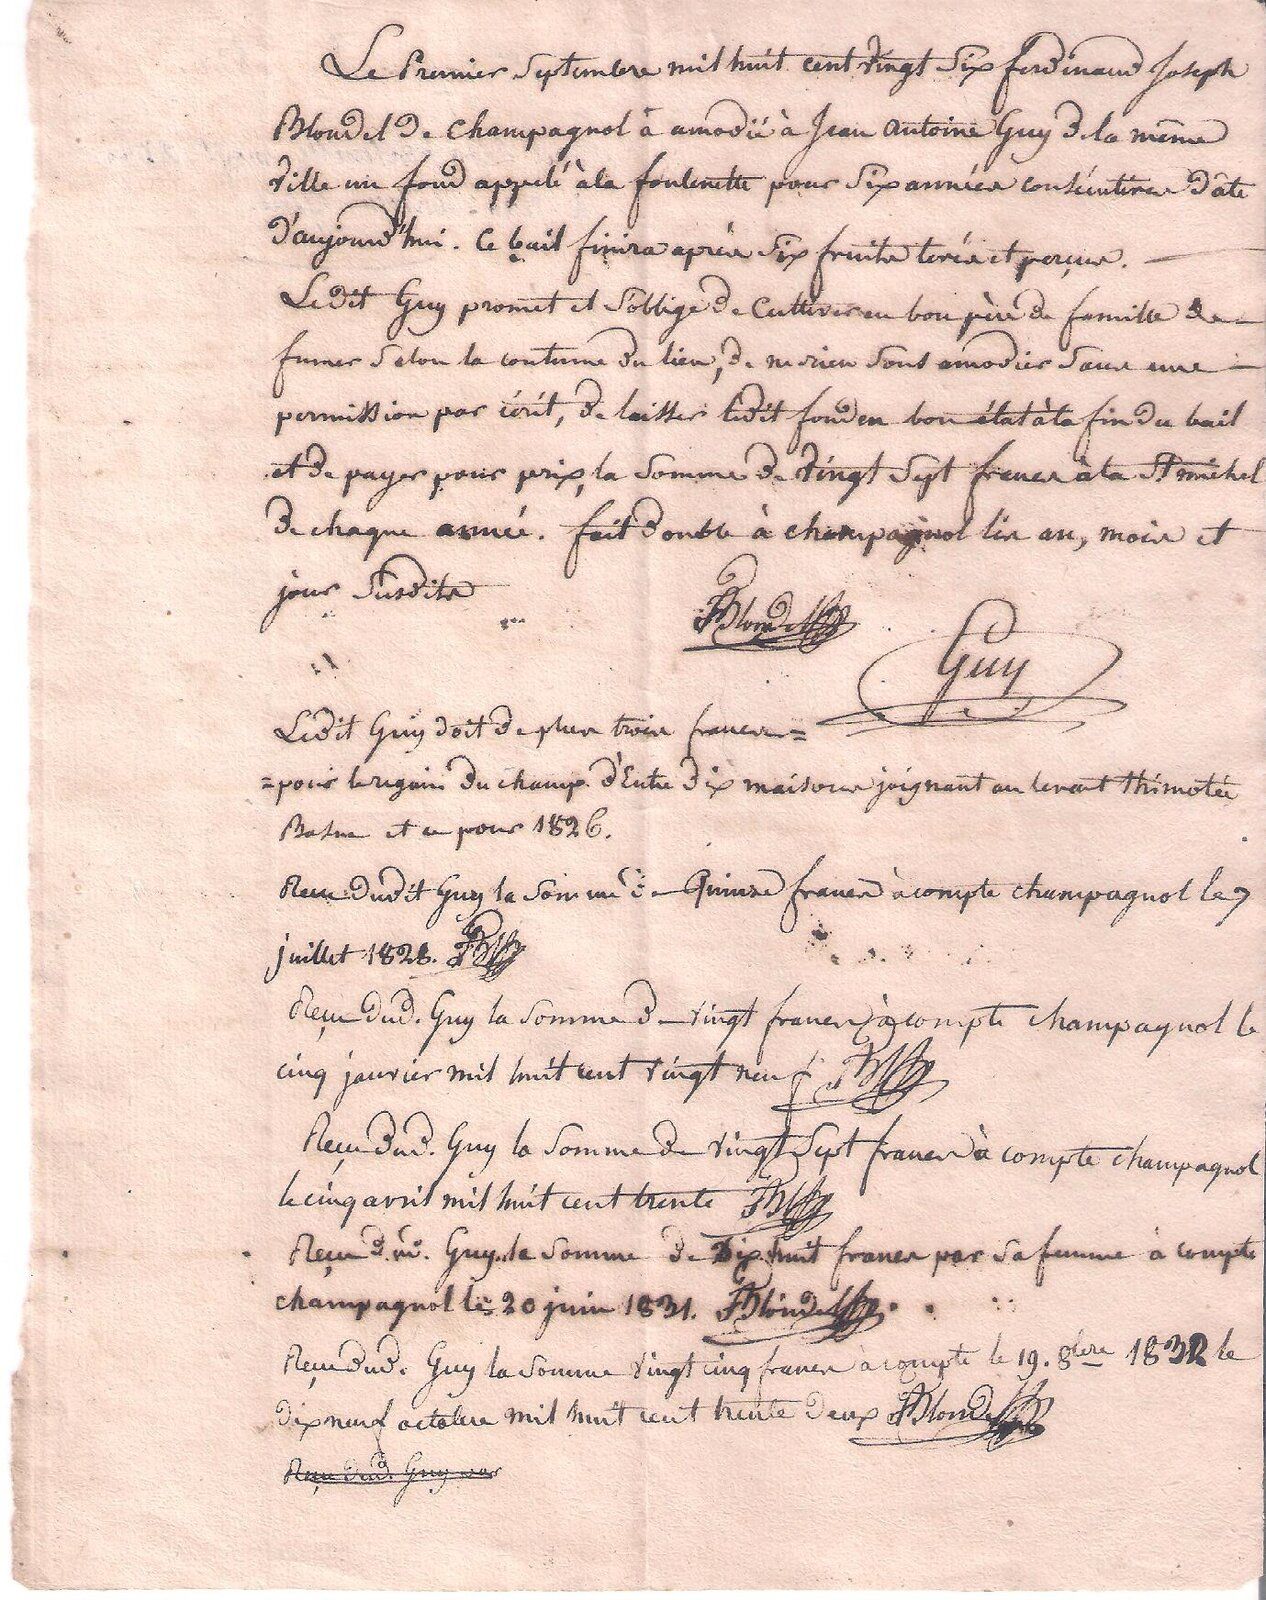 Le Premier Septembre mil huit cent vingt Six ferdinand Joseph
Blondel De Champagnol à amodié à Jean Antoine Guy De la même
ville un fond appelé à la fontenette pour Six années consécutives Dâte
D'aujourd'hui. Ce bail finira après Six fruits levés et perçus.
Ledit Guy promet et S'oblige De Cultiver en bon père De famille De
fumer Selon la coutume Du lieu, De ne rien Sous amodier Sans une
permission par écrit, De laisser ledit fond en bon état à la fin Du bail
et De payer pour prix, la Somme De Vingt Sept francs à la St michel
De chaque année. fait Double à champagnol les an, mois et
jour Susdits
FBlondel
Guy
Ledit Guy doit De plus trois francs =
= pour le regain Du champ D'Entre Dix maisons joignant au levant thimotée
et ce pour 1826.
Reçu Dudit Guy la Somme De Quinze francs à compte champagnol le 7
juillet 1828. FB
Reçu Dud. Guy la Somme De vingt francs à compte champagnol le
cinq janvier mil huit cent vingt neuf FB
Reçu Dud. Guy la Somme De vingt Sept francs à compte champagnol
le cinq avril mil huit cent trente FB
Reçu Dud. Guy la Somme De Dix huit francs par Sa femme à compte
champagnol le 20 juin 1831. FBlondel
Reçu Dud. Guy la Somme vingt cinq francs à compte le 19. 8bre 1832 le
Dix neuf octobre mil huit cent trente Deux FBlondel
Reçu Dud. Guy par